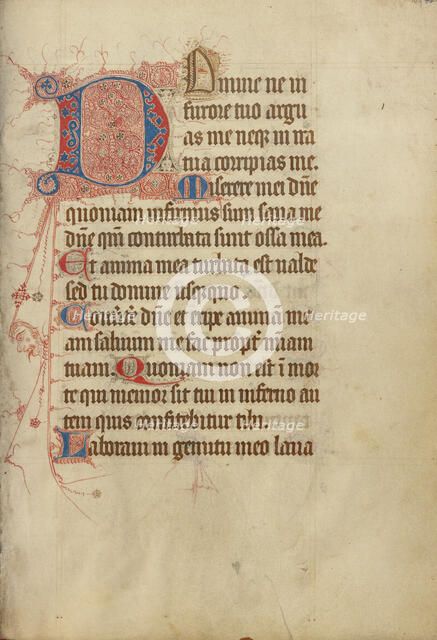 Domine ne in
furore tuo argu
as me neqz in ira
tua corripias me.
Miserere mei dn̄e
quoniam infirmus sum sana me
dn̄e qm̄ conturbata sunt ossa mea.
Et anima mea turbata est ualde
sed tu domine usequo.
Conūte dn̄e et eripe animā me
am saluum me fac propt̄ miam
tuam. Quoniam non est ī mor
te qui memor sit tui in inferno au
tem quis confitebitur tibi.
Laboraui in gemitu meo laua
Heritage
Heritage
Heritage
Heritage
Heritage